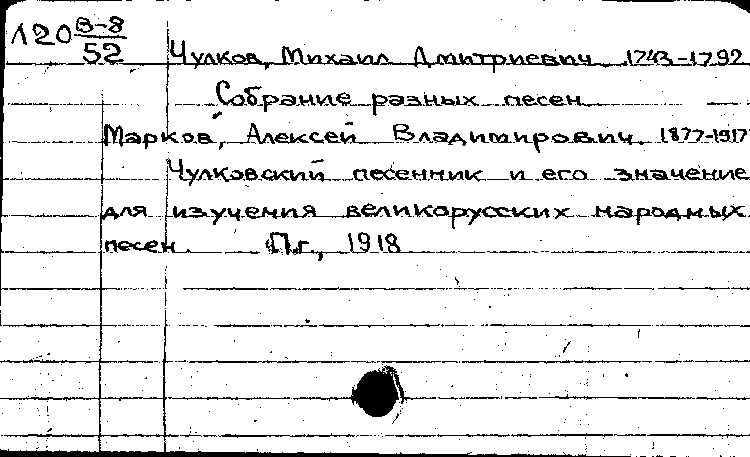 120 В-8/52
Чулков, Михаил Дмитриевич 1743-1792
Собрание разных песен
Марков, Алексей Владимирович. 1877-1917
Чулковский песенник и его значение
для изучения великорусских народных
песен. Пг., 1918